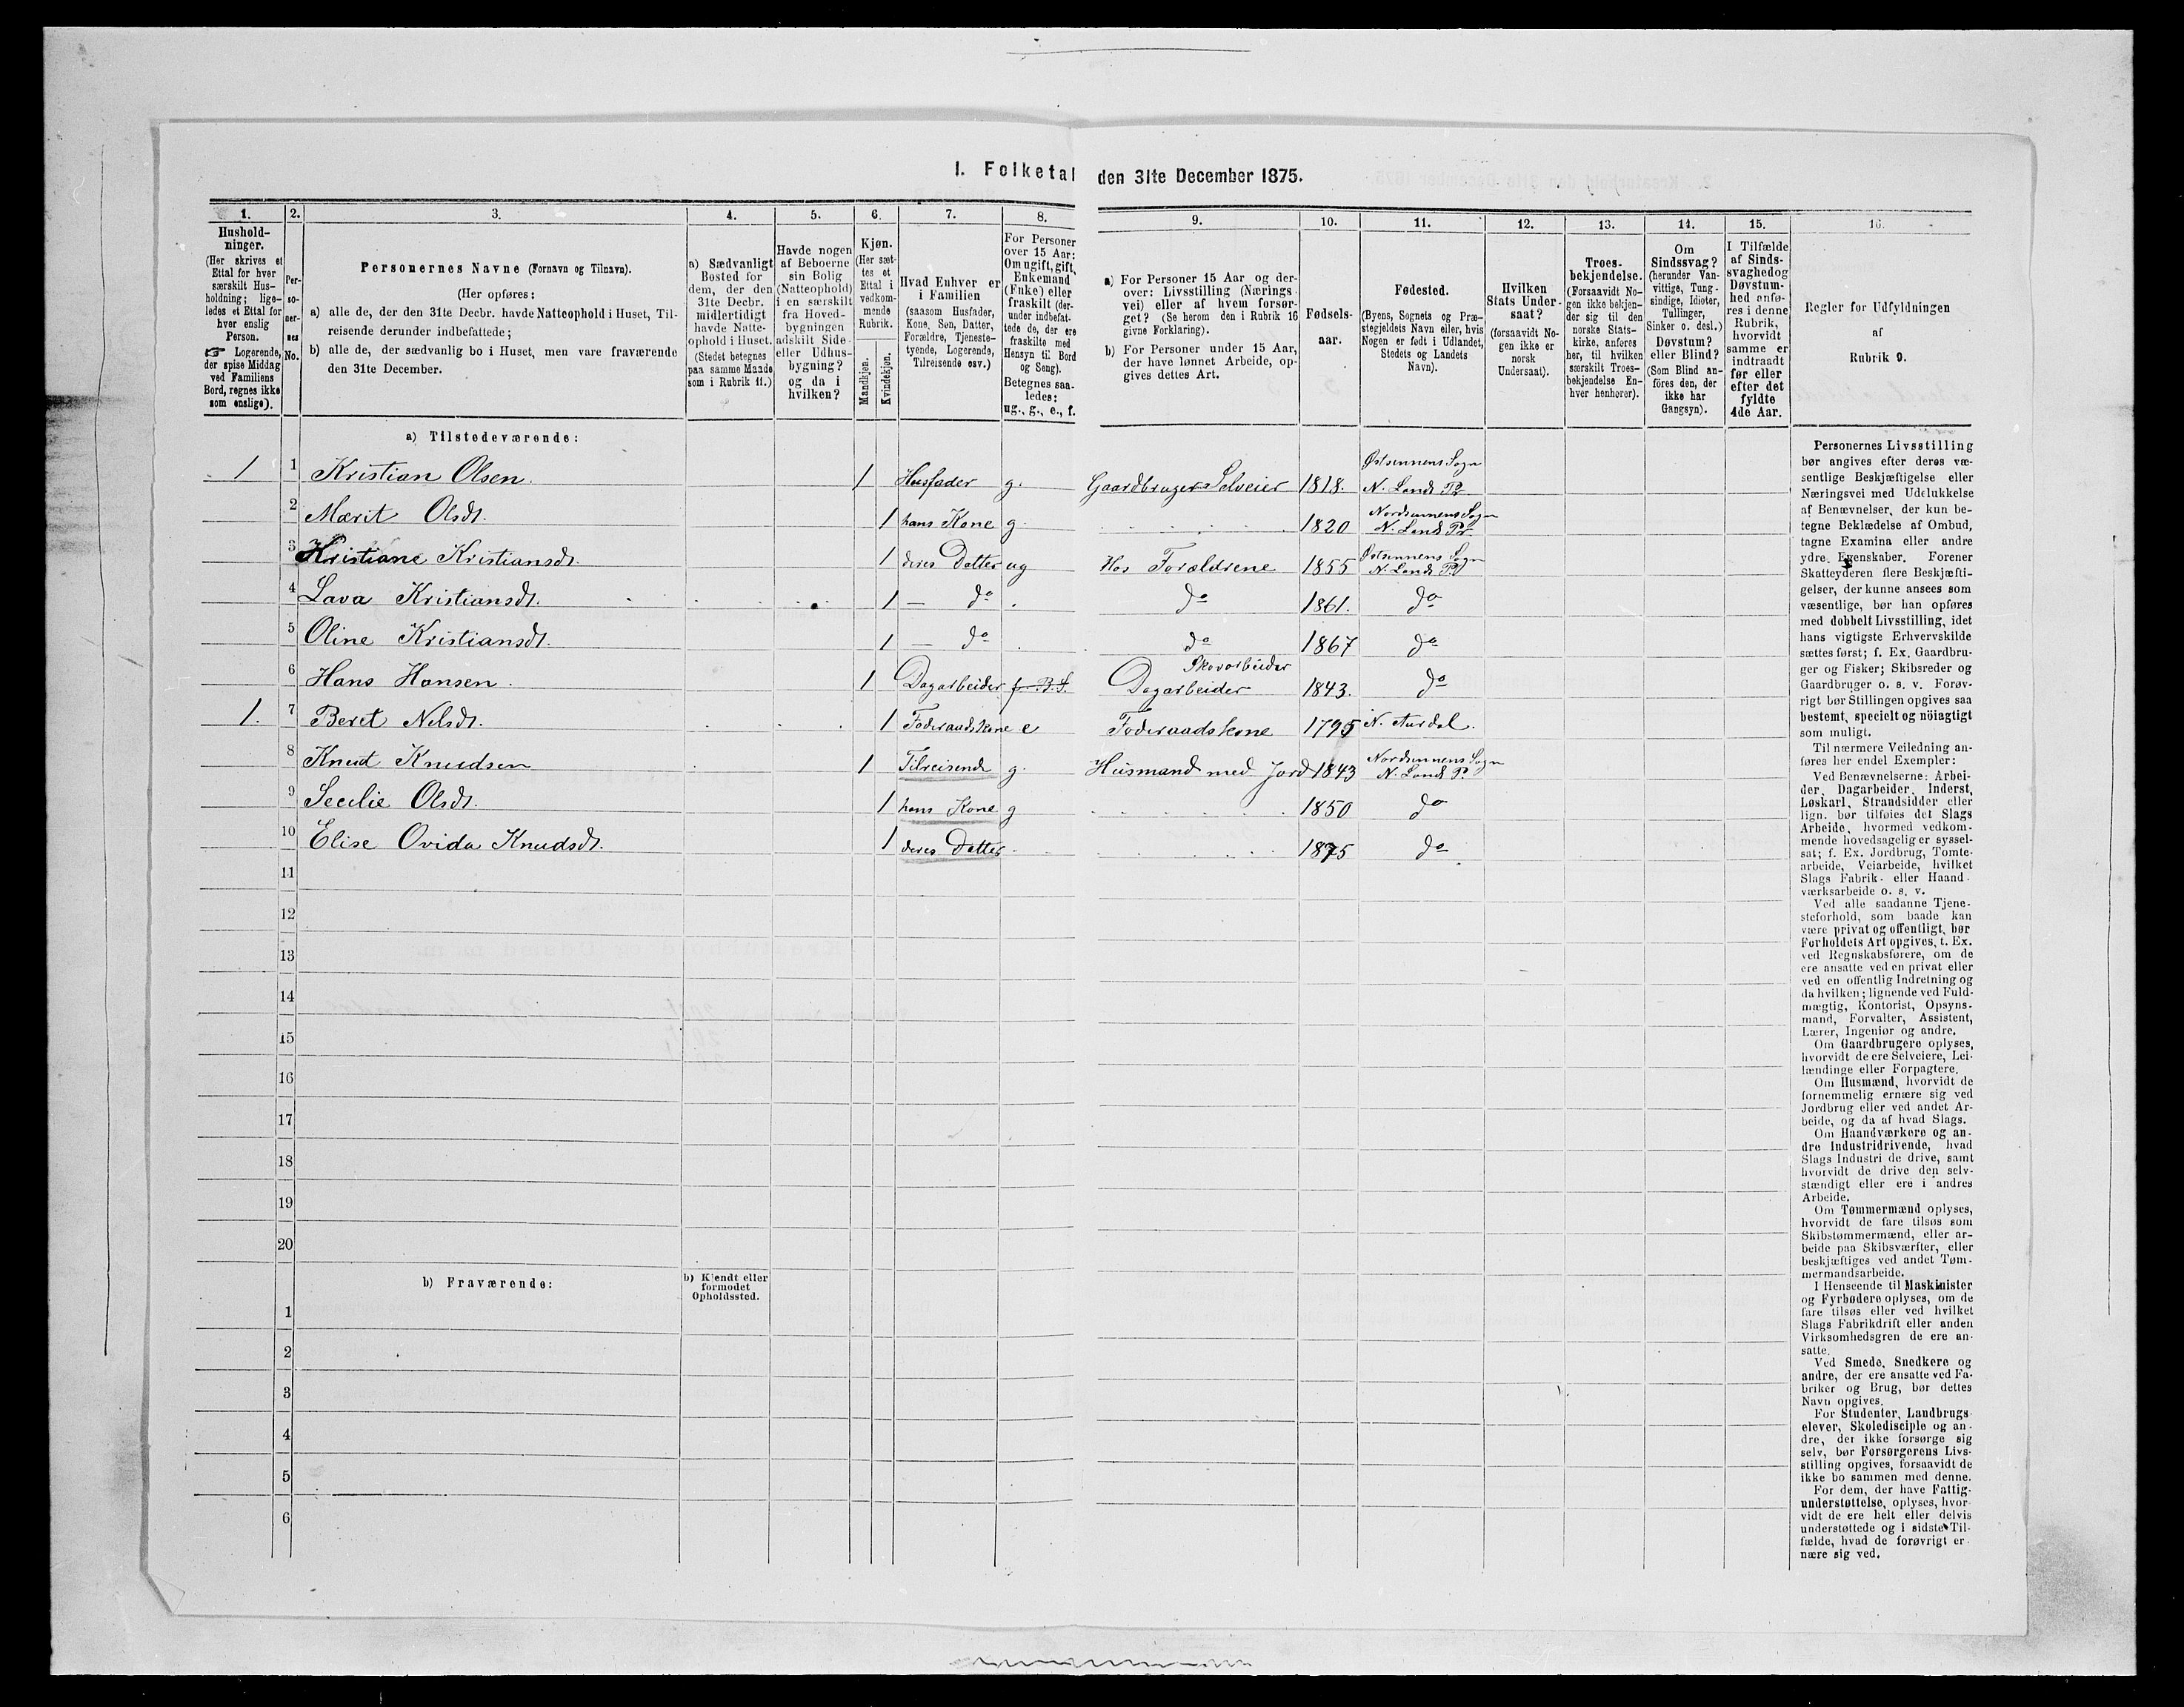 I. Folketal den 31te December 1875.
1.
2.
3.
4.
5.
6.
7.
8.
9.
10.
11.
12.
13.
14.
15.
16.
Hushold-
ninger.
(Her skrives et
Ettal for hver
særskilt Hus-
holdning; lige-
ledes et Ettal for
hver enslig
Person.
☞ Logerende,
der spise Middag
ved Familiens
Bord, regnes ikke
som enslige).
Per-
so-
ner-
nes
No.
Personernes Navne (Fornavn og Tilnavn).
(Her opføres:
a) alle de, der den 31te Decbr. havde Natteophold i Huset, Til-
reisende derunder indbefattede;
b) alle de, der sædvanlig bo i Huset, men vare fraværende
den 31te December.
a) Sædvanligt
Bosted for
dem, der den
31te Decbr.
midlertidigt
havde Natte-
ophold i Huset.
(Stedet betegnes
paa samme Maade
som i Rubrik 11.)
Havde nogen
af Beboerne
sin Bolig
(Natteophold)
i en særskilt
fra Hoved-
bygningen
adskilt Side-
eller Udhus-
bygning?
og da i
hvilken?
Kjøn.
(Her sæt-
tes et
Ettal i
vedkom-
mende
Rubrik.
Mandkjøn.
Kvindekjøn.
Hvad Enhver er
i Familien
(saasom Husfader,
Kone, Søn, Datter,
Forældre, Tjeneste-
tyende, Logerende,
Tilreisende osv.)
For Personer
over 15 Aar:
Om ugift, gift,
Enkemand
(Enke) eller
fraskilt (der-
under indbefat-
tede de, der ere
fraskilte med
Hensyn til Bord
og Seng).
Betegnes saa-
ledes:
ug., g., e., f.
a) For Personer 15 Aar og der-
over: Livsstilling (Nærings-
vei) eller af hvem forsør-
get? (Se herom den i Rubrik 16
givne Forklaring).
b) For Personer under 15 Aar,
der have lønnet Arbeide, op-
gives dettes Art.
Fødsels-
aar.
Fødested.
(Byens, Sognets og Præ-
stegjeldets Navn eller, hvis
Nogen er født i Udlandet,
Stedets og Landets
Navn).
Hvilken
Stats Under-
saat?
(forsaavidt No-
gen ikke er
norsk
Undersaat).
Troes-
bekjendelse.
(Forsaavidt No-
gen ikke bekjen-
der sig til den
norske Stats-
kirke, anføres
her, til hvilken
særskilt Troes-
bekjendelse En-
hver henhører).
Om
Sindssvag?
(herunder Van-
vittige, Tung-
sindige, Idioter,
Tullinger,
Sinker o. desl.)
Døvstum?
eller Blind?
(Som Blind an-
föres den, der
ikke har
Gangsyn).
I Tilfælde
af Sinds-
svaghed og
Døvstum-
hed anfø-
res i denne
Rubrik,
hvorvidt
samme er
indtraadt
før eller
efter det
fyldte
4de Aar.
Regler for Udfyldningen
af
Rubrik 9.
a) Tilstedeværende:
1 1 Kristian Olsen. 1 Husfader g. Gaardbruger Selveier 1818. Østsinnens Sogn N. Lands Pr
2 Marit Olsdt. 1 hans Kone g 1820 Nordsinnens Sogn N. Lands Pr.
3 Kristiane Kristiansdt. 1 deres Datter ug Hos Forældrene 1855 Østsinnens Sogn N. Lands Pr
4 Lava Kristiansdt. 1 — do do 1861. do
5 Oline Kristiansdt. 1 — do do 1867 do
6 Hans Hansen. 1 Dagarbeider Skovarbeider Dagarbeider 1843. do
1. 7 Beret Nelsdt. 1 Foderaadskone e Foderaadskone 1795 N. Aurdal.
8 Knud Knudsen 1 Tilreisende g. Husmand med Jord 1843 Nordsinnens Sogn N. Lands P.
9 Secilie Olsdt. 1 hans Kone g 1850 do
10 Elise Ovida Knudsdt. 1 deres Datter 1875 do
11
12
13
14
15
16
17
18
19
20
b) Fraværende:
b) Kjendt eller
formodet
Opholdssted.
1
2
3
4
5
6
Personernes Livsstilling
bør angives efter deres væ-
sentlige Beskjæftigelse eller
Næringsvei med Udelukkelse
af Benævnelser, der kun be-
tegne Beklædelse af Ombud,
tagne Examina eller andre
ydre Egenskaber. Forener
Skatteyderen flere Beskjæfti-
gelser, der kunne ansees som
væsentlige, bør han opføres
med dobbelt Livsstilling, idet
hans vigtigste Erhvervskilde
sættes først; f. Ex. Gaardbru-
ger og Fisker; Skibsreder og
Gaardbruger o. s. v. Forøv-
rigt bør Stillingen opgives saa
bestemt, specielt og nöiagtigt
som muligt.
Til nærmere Veiledning an-
føres her endel Exempler:
Ved Benævnelserne: Arbei-
der, Dagarbeider, Inderst,
Løskarl, Strandsidder eller
lign. bør tilføies det Slags
Arbeide, hvormed vedkom-
mende hovedsagelig er syssel-
sat; f. Ex. Jordbrug, Tomte-
arbeide, Veiarbeide, hvilket
Slags Fabrik- eller Haand-
værksarbeide o. s. v.
Ved alle saadanne Tjene-
steforhold, som baade kan
være privat og offentligt, bør
Forholdets Art opgives, t. Ex.
ved Regnskabsførere, om de
ere ansatte ved en privat eller
ved en offentlig Indretning og
da hvilken; lignende ved Fuld-
mægtig, Kontorist, Opsyns-
mand, Forvalter, Assistent,
Lærer, Ingeniør og andre.
Om Gaardbrugere oplyses,
hvorvidt de ere Selveiere, Lei-
lændinge eller Forpagtere.
Om Husmænd, hvorvidt de
fornemmelig ernære sig ved
Jordbrug eller ved andet Ar-
beide, og da af hvad Slags.
Om Haandværkere og an-
dre Industridrivende, hvad
Slags Industri de drive, samt
hvorvidt de drive den selv-
stændigt eller ere i andres
Arbeide.
Om Tømmermænd oplyses,
hvorvidt de fare tilsøs som
Skibstømmermænd, eller ar-
beide paa Skibsværfter, eller
beskjæftiges ved andet Tøm-
mermandsarbeide.
I Henseende til Maskinister
og Fyrbødere oplyses, om de
fare tilsøs eller ved hvilket
Slags Fabrikdrift eller anden
Virksomhedsgren de ere an-
satte.
Ved Smede, Snedkere og
andre, der ere ansatte ved Fa-
briker og Brug, bør dettes
Navn opgives.
For Studenter, Landbrugs-
elever, Skoledisciple og an-
dre, der ikke forsørge sig
selv, bør Forsørgerens Livs-
stilling opgives, forsaavidt de
ikke bo sammen med denne.
For dem, der have Fattig-
understøttelse, oplyses, hvor-
vidt de ere helt eller delvis
understøttede og i sidste Til-
fælde, hvad de forøvrigt er-
nære sig ved.